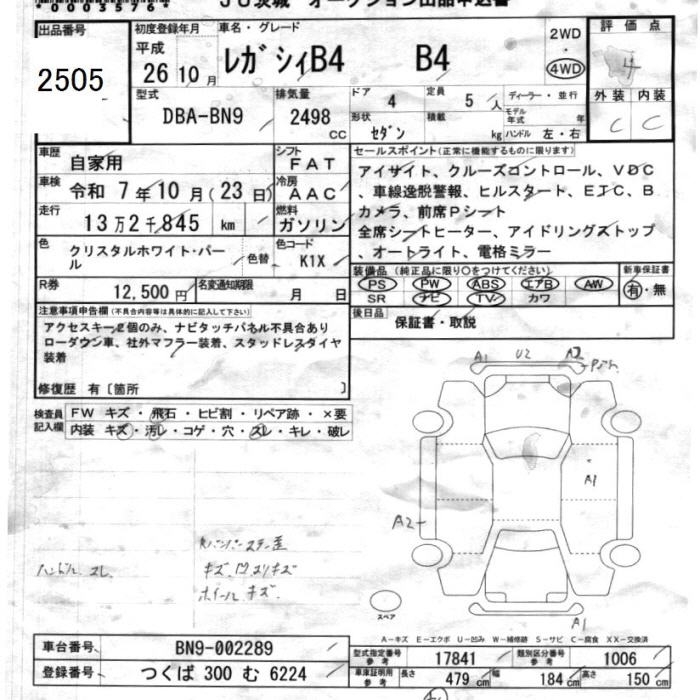 0003576
JU茨城 オークション出品申込書
出品番号 初度登録年月 車名・グレード 2WD 評価点
2505 平成 26 10月 レガシィB4 B4 4WD 4
型式 排気量 ドア 4 定員 5 人 ディーラー・並行 外装 内装
DBA-BN9 2498 cc 形状 セダン 積載 kg モデル年式 年 ハンドル 左・右 C C
車歴 自家用 シフト FAT セールスポイント(正常に機能するものに限ります)
車検 令和 7年10月(23日) 冷房 AAC アイサイト、クルーズコントロール、VDC
、車線逸脱警報、ヒルスタート、ETC、B
走行 13万2千845 km 燃料 ガソリン カメラ、前席Pシート
全席シートヒーター、アイドリングストップ
色 クリスタルホワイト・パール 色替 色コード K1X 、オートライト、電格ミラー
装備品(純正品に限り○をつけてください) 新車保証書
PS PW ABS エアB AW 有・無
SR ナビ TV カワ
R券 12,500円 名変通知期限 月 日
後日品 保証書・取説
注意事項申告欄(不具合内容等は具体的に記入して下さい)
アクセスキー2個のみ、ナビタッチパネル不具合あり
ローダウン車、社外マフラー装着、スタッドレスタイヤ
装着
修復歴 有〔箇所 〕
検査員記入欄 FW キズ・飛石・ヒビ割・リペア跡・×要
内装 キズ・汚レ・コゲ・穴・スレ・キレ・破レ
A1 U2 A2
A1
A2
ハンドル スレ
キズ、凹、スリキズ
ホイール キズ
スペア
A1
A－キズ E－エクボ U－凹み W－補修跡 S－サビ C－腐食 XX－交換済
車台番号 BN9-002289 型式指定番号 参考 17841 類別区分番号 参考 1006
登録番号 つくば 300 む 6224 車庫証明用 参考 長さ 479 cm 幅 184 cm 高さ 150 cm